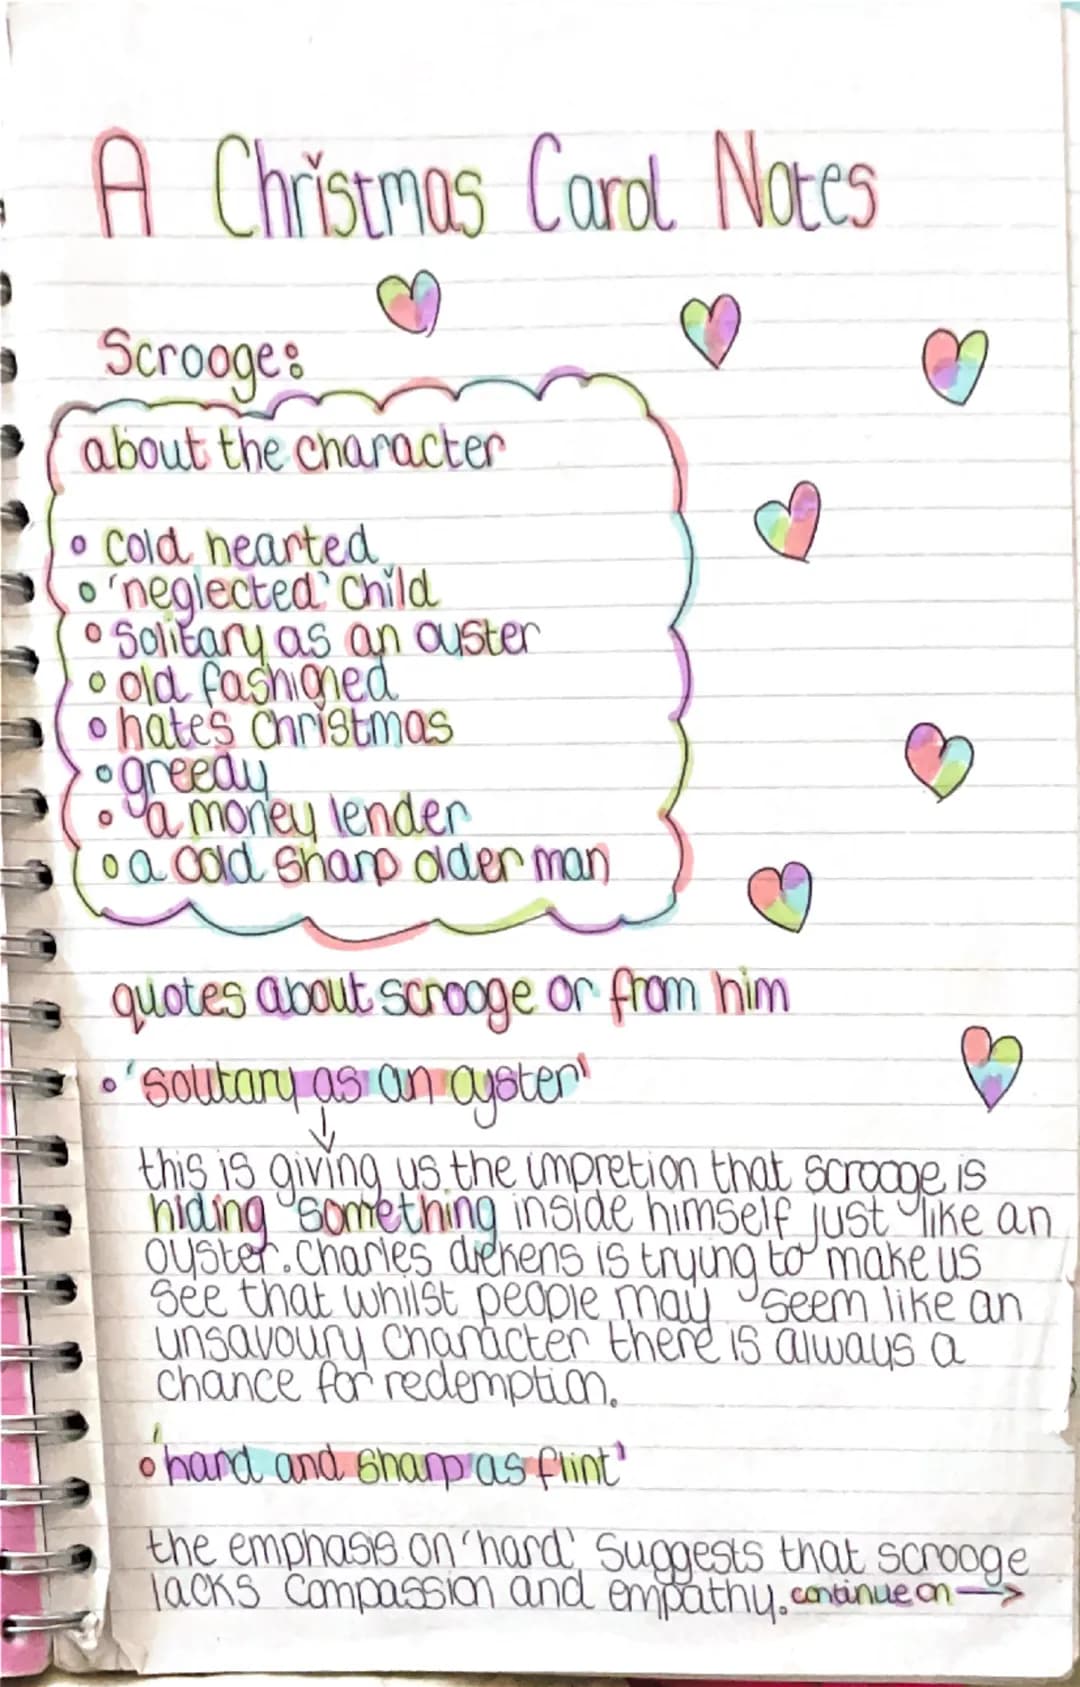 A Christmas Carol Notes
Scrooge:
about the character
• cold hearted
• 'neglected' child
• Solitary as an oyster
• old fashioned
• hates christmas
• greedy
• a money lender
• a cold sharp older man
quotes about scrooge or from him
• 'solitary as an oyster'
↓
this is giving us the impretion that scrooge is
hiding something inside himself just like an
oyster. Charles dickens is trying to make us
see that whilst people may seem like an
unsavoury character there is always a
chance for redemption.
• 'hard and sharp as flint'
the emphasis on 'hard' suggests that scrooge
lacks compassion and empathy. continue on →